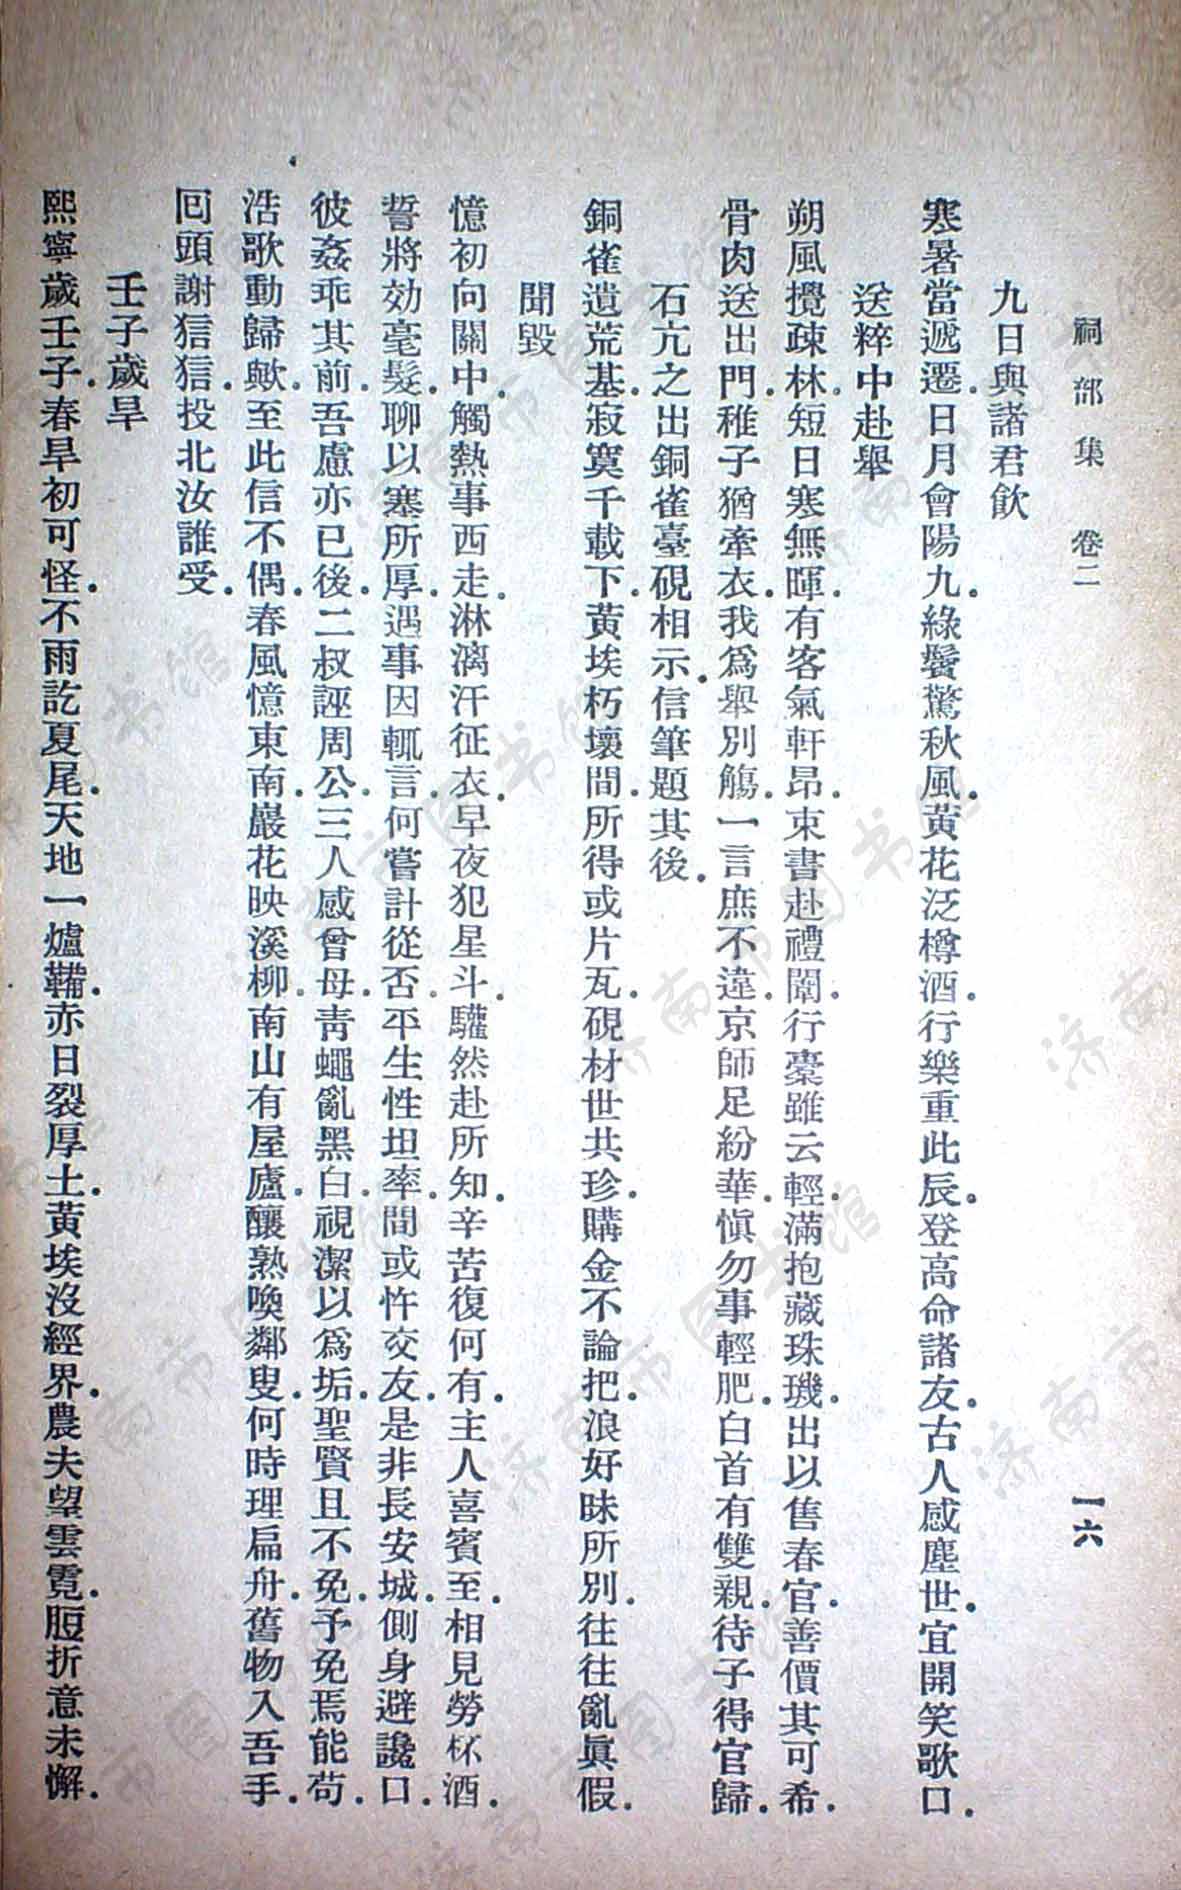 祠部集　卷二　一六
九日與諸君飲
寒暑當遞遷。日月會陽九。綠鬢驚秋風。黃花泛樽酒。行樂重此辰。登高命諸友。古人感塵世。宜開笑歌口。
送粹中赴舉
朔風攪疎林。短日寒無暉。有客氣軒昂。束書赴禮闈。行橐雖云輕。滿抱藏珠璣。出以售春官。善價其可希。
骨肉送出門。稚子猶牽衣。我爲舉別觴。一言庶不違。京師足紛華。愼勿事輕肥。白首有雙親。待子得官歸。
石亢之出銅雀臺硯相示。信筆題其後。
銅雀遺荒基。寂寞千載下。黃埃朽壞間。所得或片瓦。硯材世共珍。購金不論把。浪好昧所別。往往亂眞假。
聞毀
憶初向關中。觸熱事西走。淋漓汗征衣。早夜犯星斗。驩然赴所知。辛苦復何有。主人喜賓至。相見勞杯酒。
誓將効毫髮。聊以塞所厚。遇事因輒言。何嘗計從否。平生性坦率。間或忤交友。是非長安城。側身避讒口。
彼姦乖其前。吾慮亦已後。二叔誣周公。三人感曾母。靑蠅亂黑白。視潔以爲垢。聖賢且不免。予免焉能苟。
浩歌動歸歟。至此信不偶。春風憶東南。巖花映溪柳。南山有屋廬。釀熟喚鄰叟。何時理扁舟。舊物入吾手。
回頭謝狺狺。投北汝誰受。
壬子歲旱
熙寧歲壬子。春旱初可怪。不雨訖夏尾。天地一爐鞴。赤日裂厚土。黃埃沒經界。農夫望雲霓。脰折意未懈。